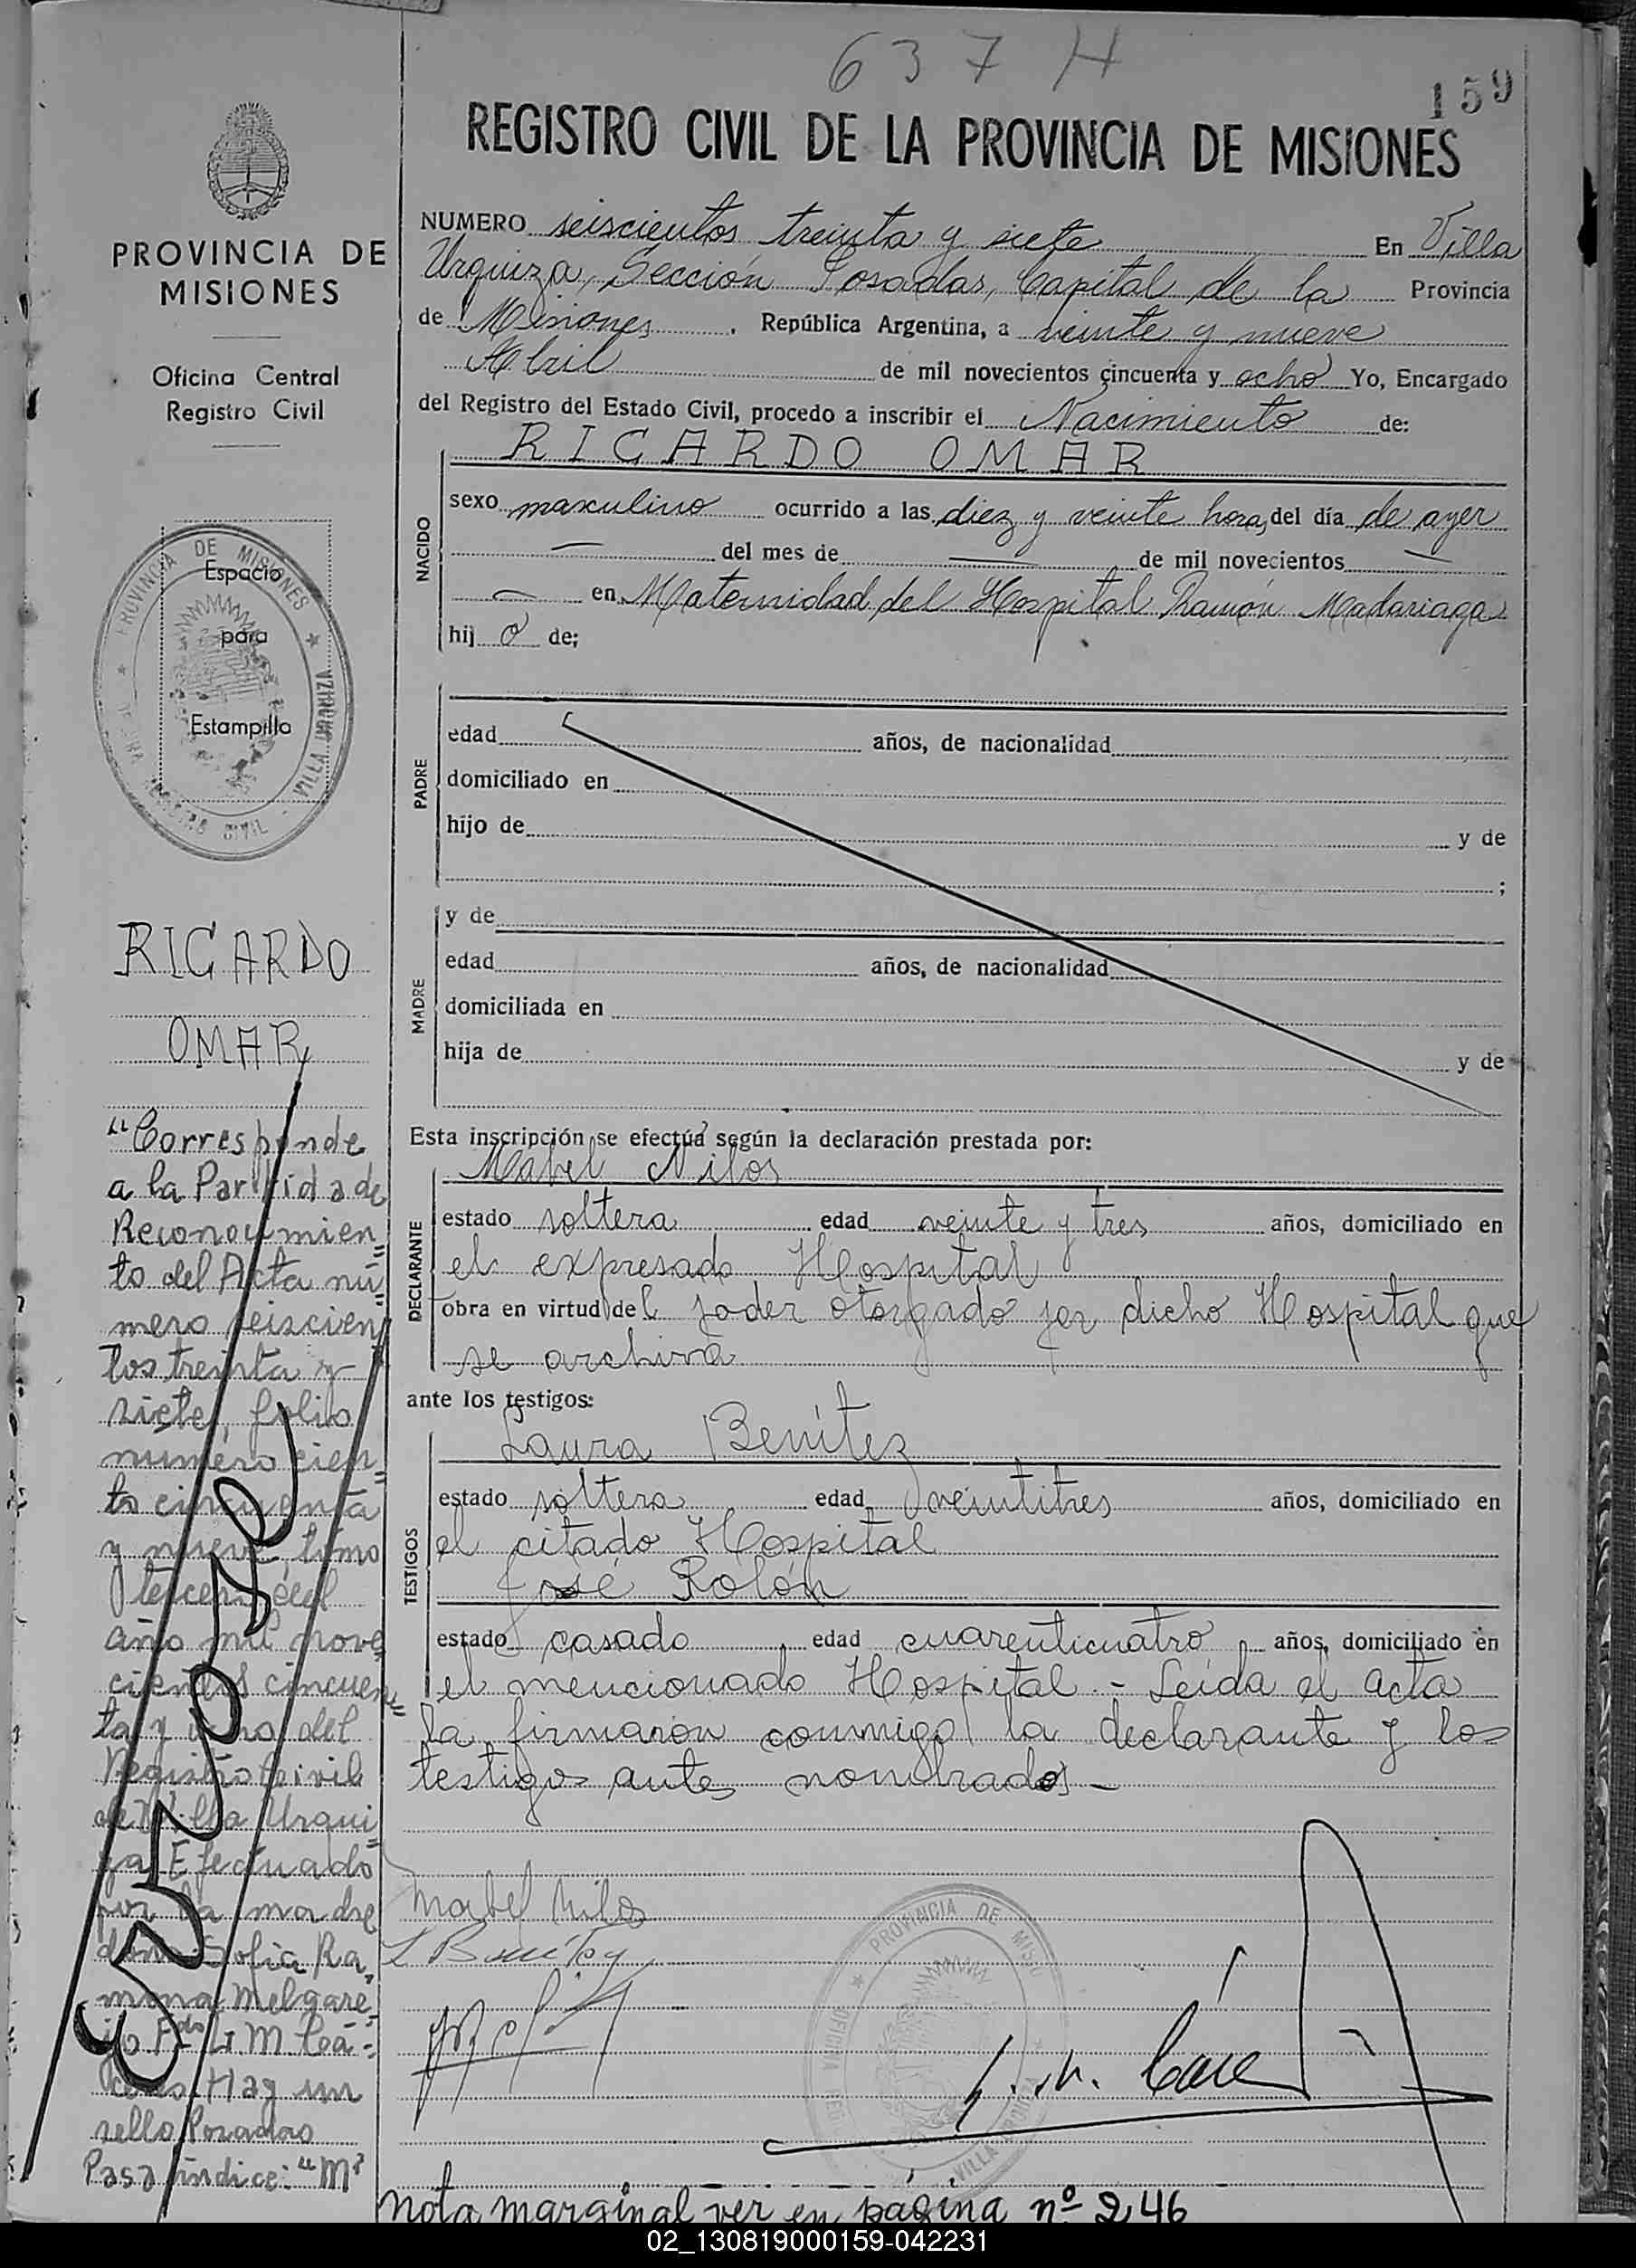 637 H
159
REGISTRO CIVIL DE LA PROVINCIA DE MISIONES
NUMERO seiscientos treinta y siete En Villa
Urquiza, Sección Posadas, Capital de la Provincia
de Misiones. República Argentina, a veinte y nueve
Abril de mil novecientos cincuenta y ocho Yo, Encargado
del Registro del Estado Civil, procedo a inscribir el Nacimiento de:
NACIDO
RICARDO OMAR
sexo masculino ocurrido a las diez y veinte horas, del día de ayer
— del mes de — de mil novecientos —
— en Maternidad del Hospital Ramón Madariaga
hij o de;
PADRE
edad años, de nacionalidad
domiciliado en
hijo de y de
;
MADRE
y de
edad años, de nacionalidad
domiciliada en
hija de y de
Esta inscripción se efectúa según la declaración prestada por:
DECLARANTE
Mabel Nilos
estado soltera edad veinte y tres años, domiciliado en
el expresado Hospital
obra en virtud del poder otorgado por dicho Hospital que
se archiva
ante los testigos:
TESTIGOS
Laura Benítez
estado soltera edad veintitres años, domiciliado en
el citado Hospital
José Rolón
estado casado edad cuarenticuatro años, domiciliado en
el mencionado Hospital.- Leída el acta
la firmaron conmigo la declarante y los
testigos antes nombrados -
Mabel Nilos
L Benítez
nota marginal ver en página nº 246
PROVINCIA DE
MISIONES
Oficina Central
Registro Civil
PROVINCIA DE MISIONES
VILLA URQUIZA
REGISTRO CIVIL
Espacio
para
Estampilla
RICARDO
OMAR
"Corresponde
a la Partida de
Reconocimien=
to del Acta nú=
mero seiscien=
tos treinta y
siete, folio
número cien=
to cincuenta
y nueve, tomo
tercero del
año mil nove
cientos cincuen=
ta y ocho del
Registro Civil
de Villa Urqui=
za Efectuado
por la madre
doña Sofía Ra=
mona Melgare=
jo Fdo L. M. Cea=
Hay un
sello Posadas
Pasa índice: "M"
PROVINCIA DE MISIO
OFICINA
VILLA
02_130819000159-042231